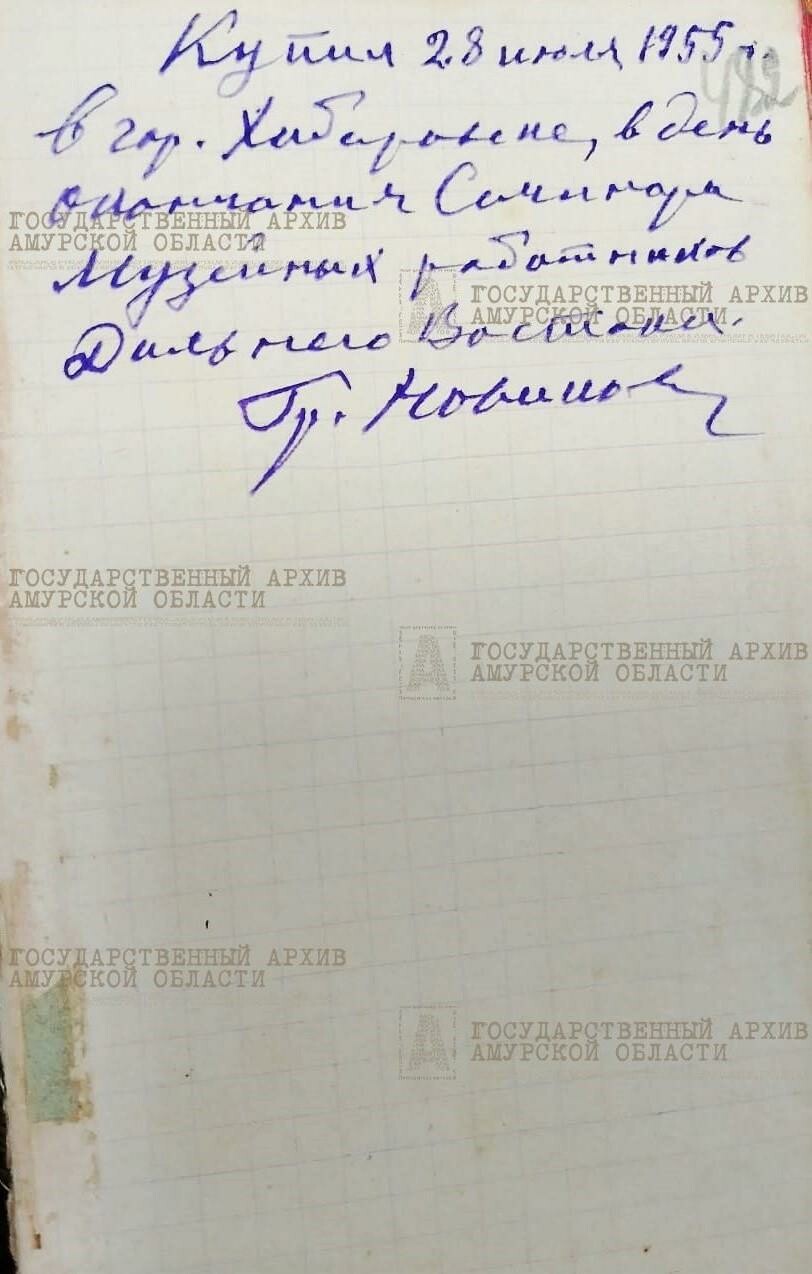 Купил 28 июля 1955 г.
482
в гор. Хабаровске, в день
окончания Семинара
Музейных работников
Дальнего Востока.
Гр. Новиков
ГОСУДАРСТВЕННЫЙ АРХИВ
АМУРСКОЙ ОБЛАСТИ
ГОСУДАРСТВЕННЫЙ АРХИВ
АМУРСКОЙ ОБЛАСТИ
ГОСУДАРСТВЕННЫЙ АРХИВ
АМУРСКОЙ ОБЛАСТИ
ГОСУДАРСТВЕННЫЙ АРХИВ
АМУРСКОЙ ОБЛАСТИ
ГОСУДАРСТВЕННЫЙ АРХИВ
АМУРСКОЙ ОБЛАСТИ
ГОСУДАРСТВЕННЫЙ АРХИВ
АМУРСКОЙ ОБЛАСТИ